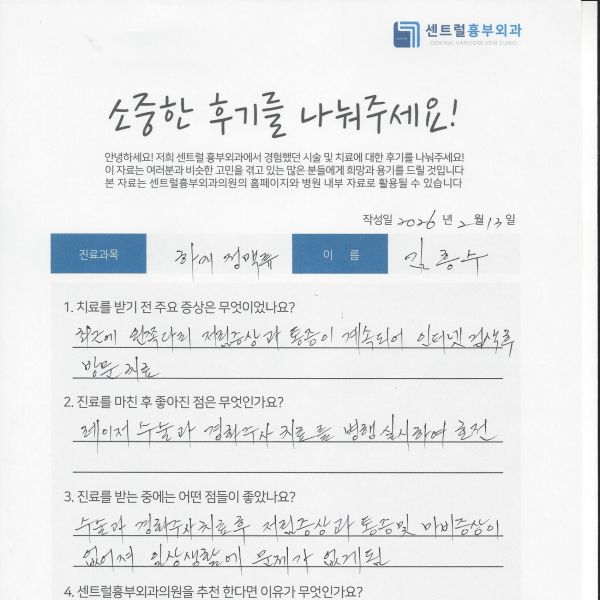 센트럴흉부외과
CENTRAL VARICOSE VEIN CLINIC
소중한 후기를 나눠주세요!
안녕하세요! 저희 센트럴 흉부외과에서 경험했던 시술 및 치료에 대한 후기를 나눠주세요!
이 자료는 여러분과 비슷한 고민을 겪고 있는 많은 분들에게 희망과 용기를 드릴 것입니다
본 자료는 센트럴흉부외과의원의 홈페이지와 병원 내부 자료로 활용될 수 있습니다
작성일 2026 년 2월 13일
진료과목 하지 정맥류 이 름 김흥수
1. 치료를 받기 전 주요 증상은 무엇이었나요?
최근에 왼쪽다리 저림증상과 통증이 계속되어 인터넷 검색후
방문 치료
2. 진료를 마친 후 좋아진 점은 무엇인가요?
레이저 수술과 경화주사 치료를 병행 실시하여 호전
3. 진료를 받는 중에는 어떤 점들이 좋았나요?
수술과 경화주사치료후 저림증상과 통증및 마비증상이
없어져 일상생활에 문제가 없게됨
4. 센트럴흉부외과의원을 추천 한다면 이유가 무엇인가요?